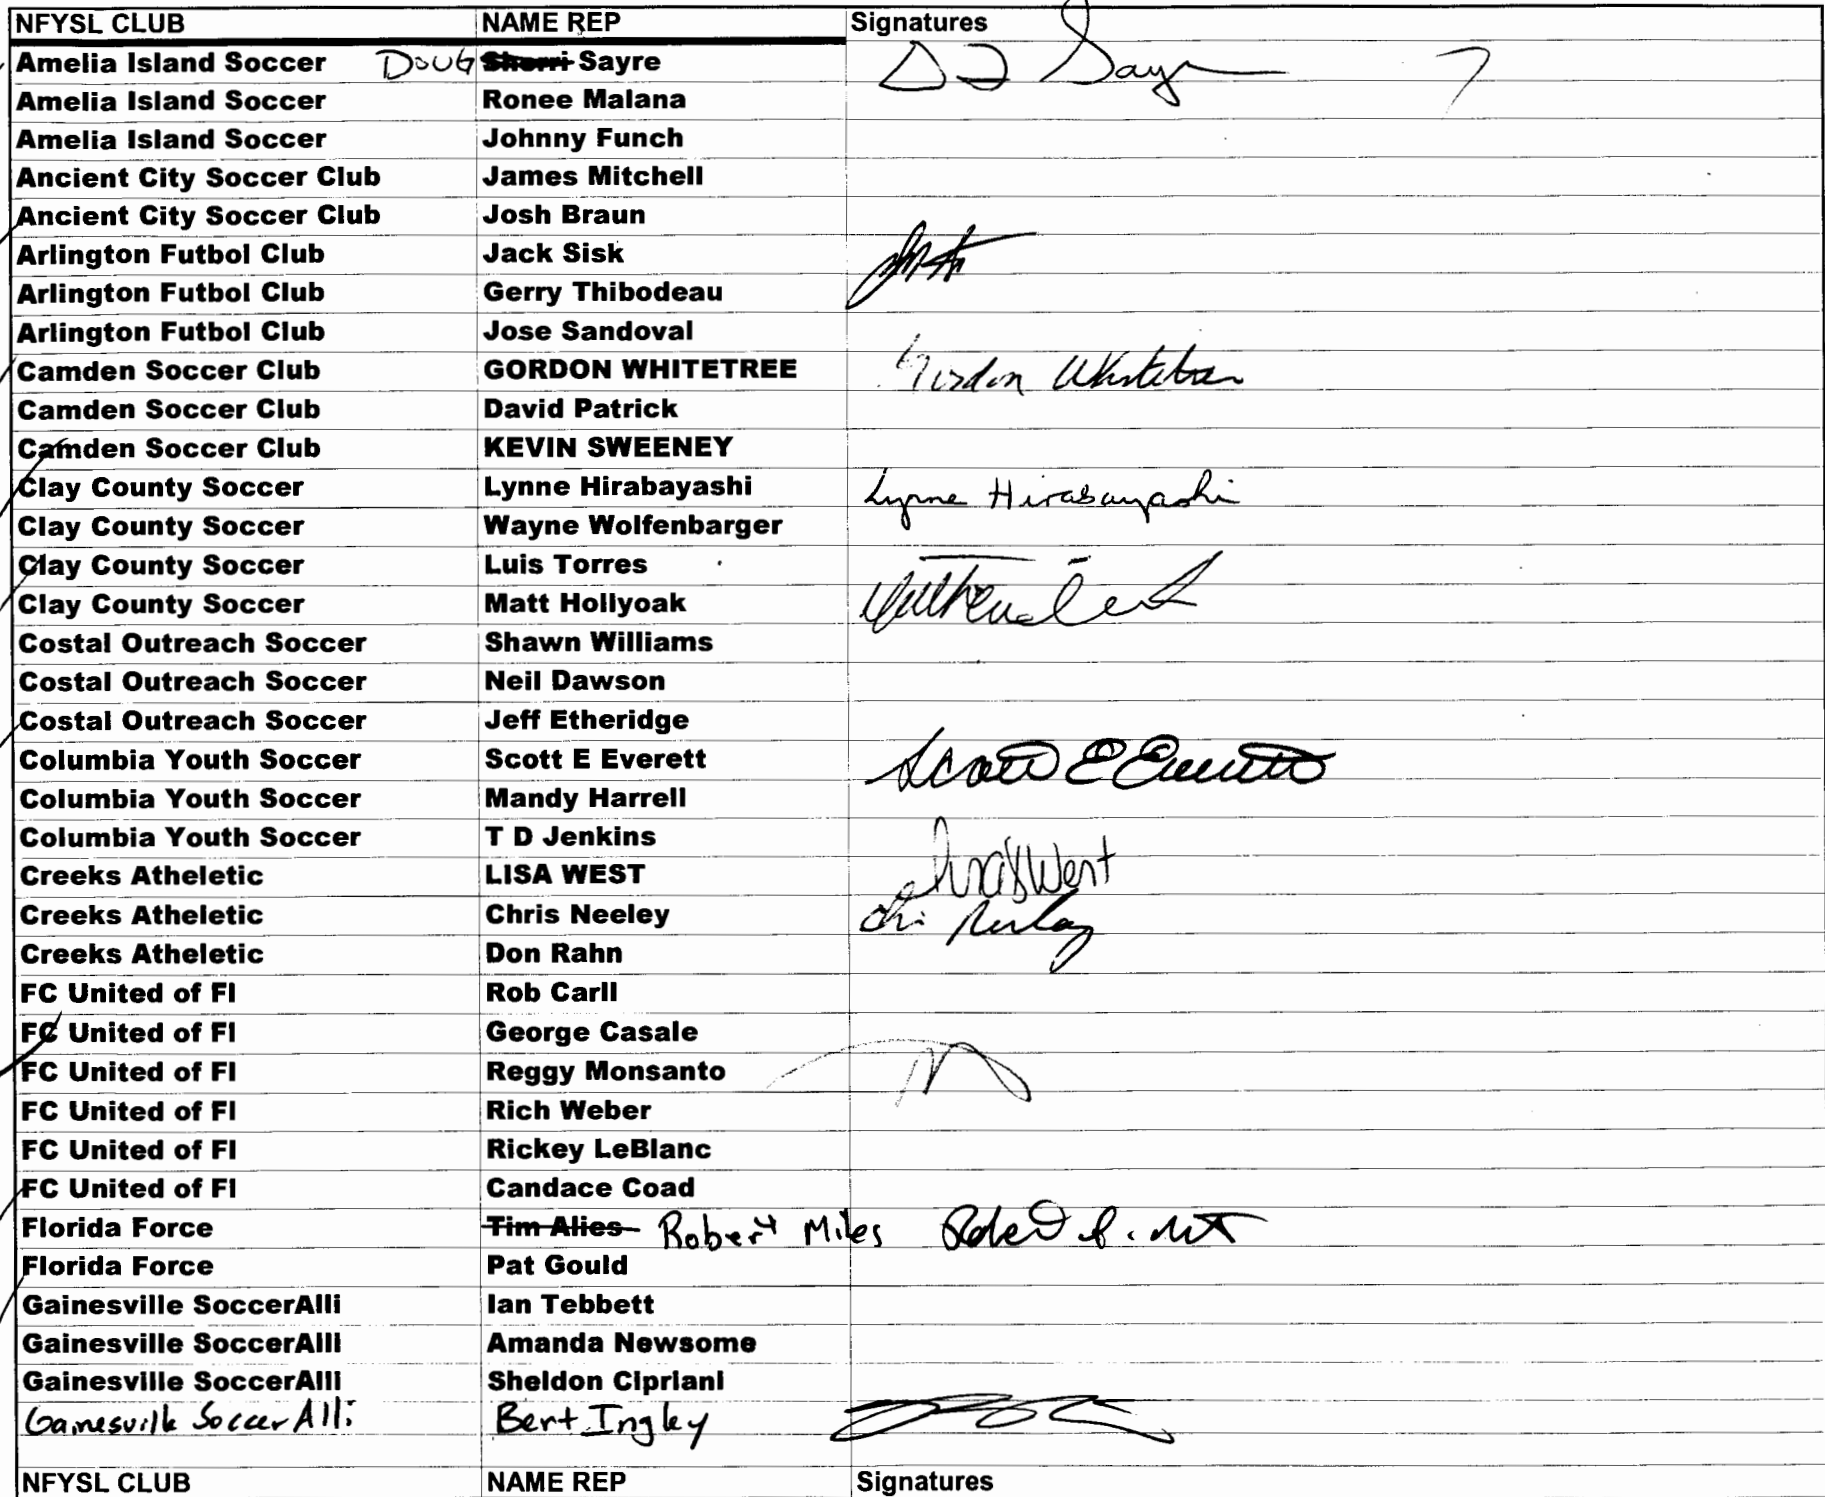 NFYSL CLUB NAME REP Signatures
Amelia Island Soccer DOUG Sherri Sayre Sayre
Amelia Island Soccer Ronee Malana
Amelia Island Soccer Johnny Funch
Ancient City Soccer Club James Mitchell
Ancient City Soccer Club Josh Braun
Arlington Futbol Club Jack Sisk
Arlington Futbol Club Gerry Thibodeau
Arlington Futbol Club Jose Sandoval
Camden Soccer Club GORDON WHITETREE Gordon Whitetree
Camden Soccer Club David Patrick
Camden Soccer Club KEVIN SWEENEY
Clay County Soccer Lynne Hirabayashi Lynne Hirabayashi
Clay County Soccer Wayne Wolfenbarger
Clay County Soccer Luis Torres
Clay County Soccer Matt Hollyoak
Costal Outreach Soccer Shawn Williams
Costal Outreach Soccer Neil Dawson
Costal Outreach Soccer Jeff Etheridge
Columbia Youth Soccer Scott E Everett Scott E Everett
Columbia Youth Soccer Mandy Harrell
Columbia Youth Soccer T D Jenkins
Creeks Atheletic LISA WEST Lisa West
Creeks Atheletic Chris Neeley
Creeks Atheletic Don Rahn
FC United of Fl Rob Carll
FC United of Fl George Casale
FC United of Fl Reggy Monsanto
FC United of Fl Rich Weber
FC United of Fl Rickey LeBlanc
FC United of Fl Candace Coad
Florida Force Tim Alies Robert Miles
Florida Force Pat Gould
Gainesville SoccerAlli Ian Tebbett
Gainesville SoccerAlli Amanda Newsome
Gainesville SoccerAlli Sheldon Cipriani
Gainesville Soccer Alli Bert Ingley
NFYSL CLUB NAME REP Signatures